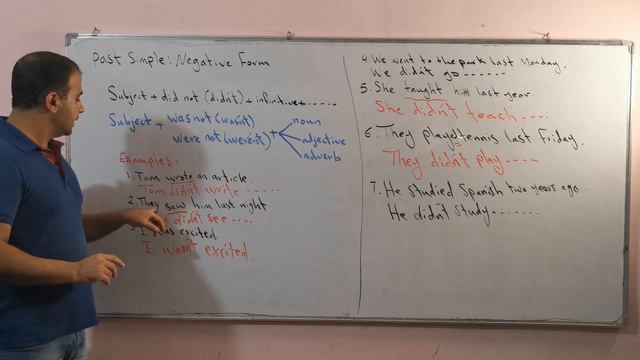 Past Simple: Negative Form
Subject + did not (didn't) + infinitive + ......
Subject + was not (wasn't)
were not (weren't)
+
noun
adjective
adverb
Examples:
1. Tom wrote an article
Tom didn't write .....
2. They saw him last night
didn't see ....
I was excited
I wasn't excited.
4. We went to the park last Monday.
We didn't go ......
5. She taught him last year
She didn't teach ....
6. They played tennis last Friday.
They didn't play ....
7. He studied Spanish two years ago.
He didn't study .......